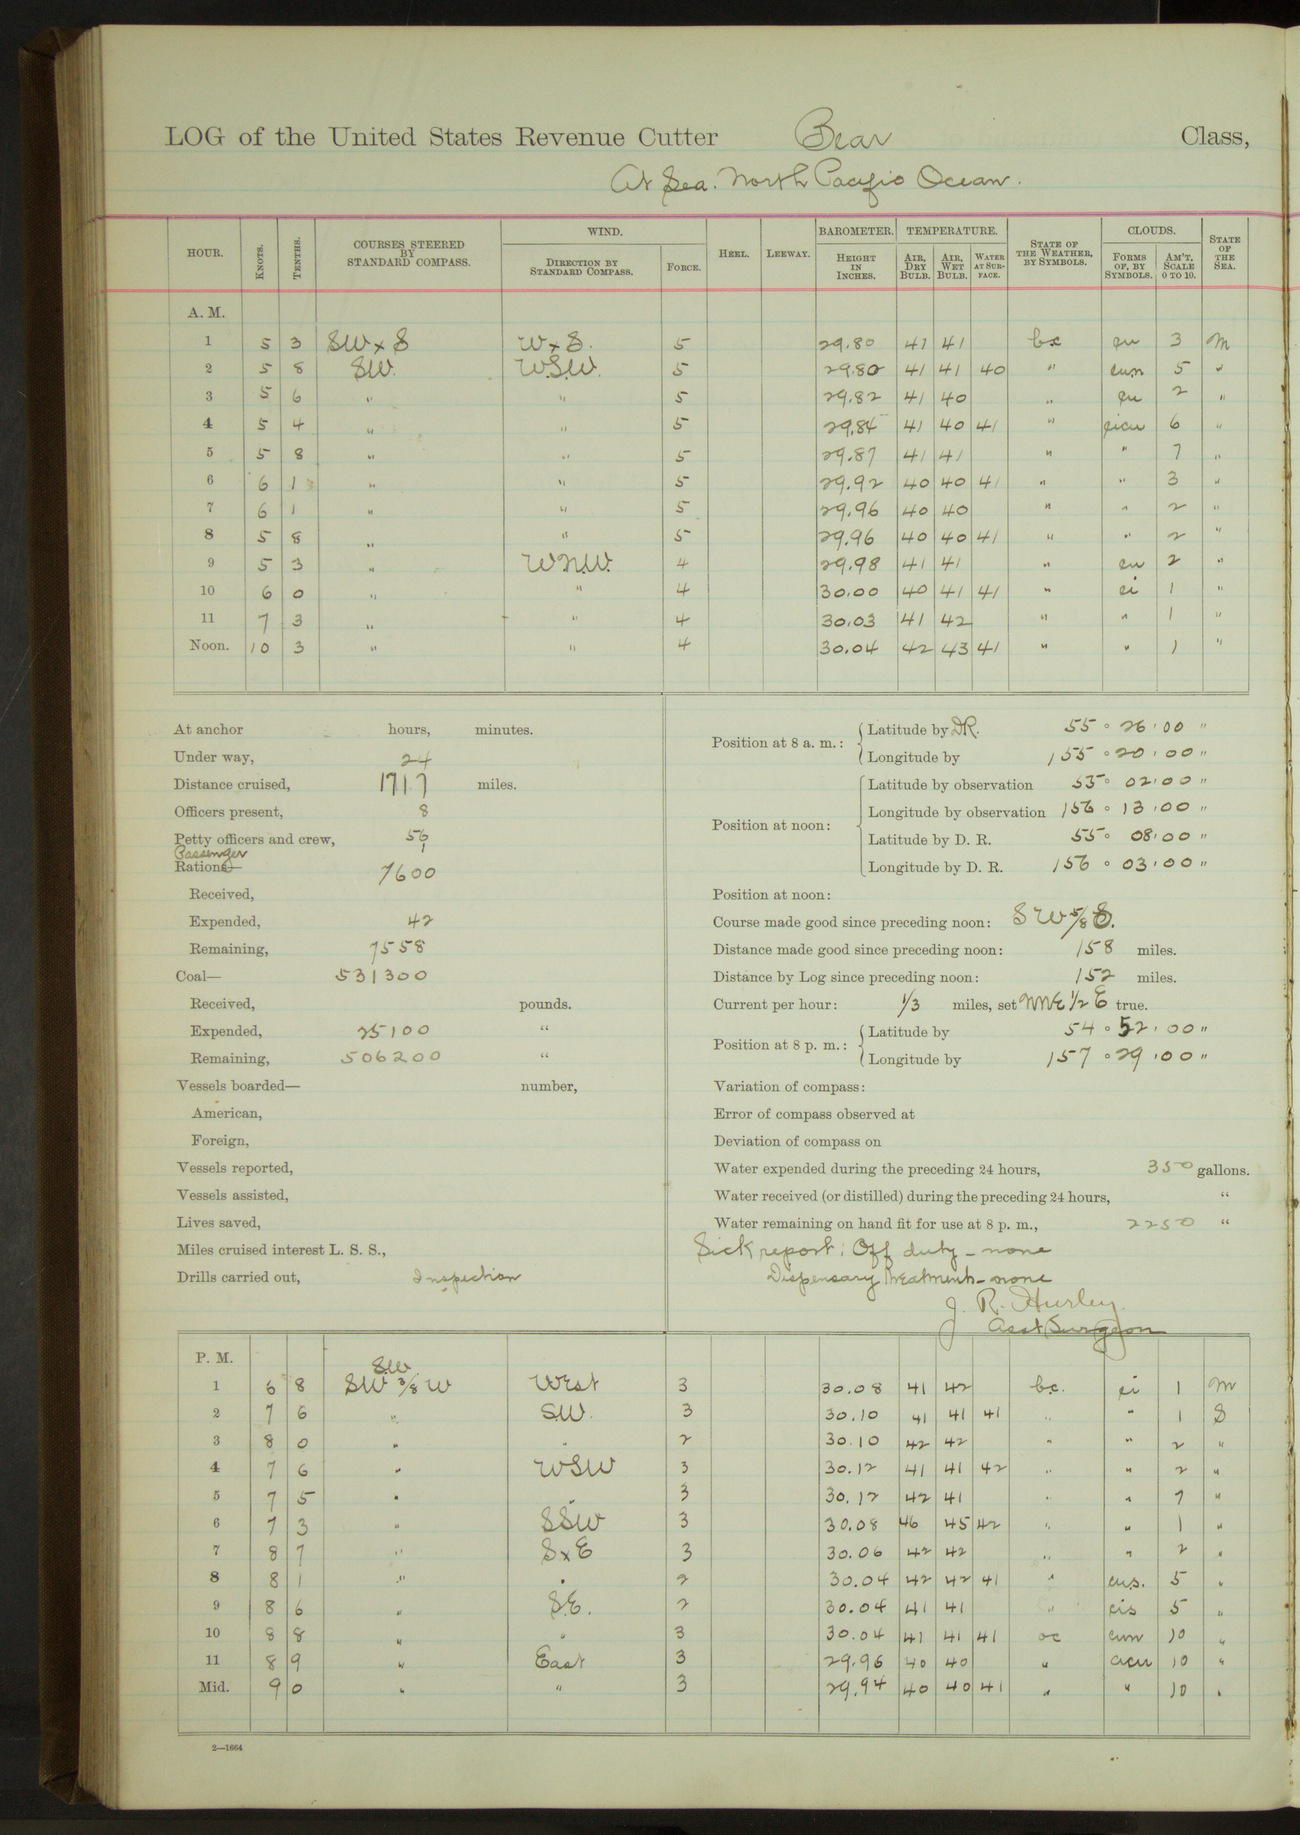 LOG of the United States Revenue Cutter Bear Class,
At Sea. North Pacific Ocean.
HOUR. KNOTS. TENTHS. COURSES STEERED BY STANDARD COMPASS. WIND. DIRECTION BY STANDARD COMPASS. FORCE. HEEL. LEEWAY. BAROMETER. HEIGHT IN INCHES. TEMPERATURE. AIR, DRY BULB. AIR, WET BULB. WATER AT SURFACE. STATE OF THE WEATHER, BY SYMBOLS. CLOUDS. FORMS OF, BY SYMBOLS. AM'T, SCALE 0 TO 10. STATE OF THE SEA.
A. M.
1 5 3 SW x S W x S. 5 29.80 41 41 bc cu 3 M
2 5 8 SW. WSW. 5 29.80 41 41 40 " cun 5 "
3 5 6 " " 5 29.82 41 40 " cu 2 "
4 5 4 " " 5 29.84 41 40 41 " cicu 6 "
5 5 8 " " 5 29.87 41 41 " " 7 "
6 6 1 " " 5 29.92 40 40 41 " " 3 "
7 6 1 " " 5 29.96 40 40 " " 2 "
8 5 8 " " 5 29.96 40 40 41 " " 2 "
9 5 3 " WNW. 4 29.98 41 41 " cu 2 "
10 6 0 " " 4 30.00 40 41 41 " ci 1 "
11 7 3 " " 4 30.03 41 42 " " 1 "
Noon. 10 3 " " 4 30.04 42 43 41 " " 1 "
At anchor hours, minutes.
Under way, 24
Distance cruised, 171.7 miles.
Officers present, 8
Petty officers and crew, 56
Passenger 1
Rations— 7600
Received,
Expended, 42
Remaining, 7558
Coal— 531300
Received, pounds.
Expended, 25100 "
Remaining, 506200 "
Vessels boarded— number,
American,
Foreign,
Vessels reported,
Vessels assisted,
Lives saved,
Miles cruised interest L. S. S.,
Drills carried out, Inspection
Position at 8 a. m.: Latitude by DR. 55 ° 26 ' 00 "
Longitude by 155 ° 20 ' 00 "
Position at noon: Latitude by observation 55 ° 02 ' 00 "
Longitude by observation 156 ° 13 ' 00 "
Latitude by D. R. 55 ° 08 ' 00 "
Longitude by D. R. 156 ° 03 ' 00 "
Position at noon:
Course made good since preceding noon: SW 5/8 S.
Distance made good since preceding noon: 158 miles.
Distance by Log since preceding noon: 152 miles.
Current per hour: 1/3 miles, set NNE 1/2 E true.
Position at 8 p. m.: Latitude by 54 ° 52 ' 00 "
Longitude by 157 ° 29 ' 00 "
Variation of compass:
Error of compass observed at
Deviation of compass on
Water expended during the preceding 24 hours, 350 gallons.
Water received (or distilled) during the preceding 24 hours, "
Water remaining on hand fit for use at 8 p. m., 2250 "
Sick report: Off duty - none
Dispensary treatment - none
J. R. Hurley.
Asst Surgeon
P. M.
SW
1 6 8 SW 3/8 W West 3 30.08 41 42 bc. ci 1 M
2 7 6 " SW. 3 30.10 41 41 41 " " 1 S
3 8 0 " " 2 30.10 42 42 " " 2 "
4 7 6 " WSW 3 30.12 41 41 42 " " 2 "
5 7 5 " " 3 30.12 42 41 " " 7 "
6 7 3 " SSW 3 30.08 46 45 42 " " 1 "
7 8 7 " S x E 3 30.06 42 42 " " 2 "
8 8 1 " " 2 30.04 42 42 41 " cus. 5 "
9 8 6 " SE. 2 30.04 41 41 " cis 5 "
10 8 8 " " 3 30.04 41 41 41 oc cun 10 "
11 8 9 " East 3 29.96 40 40 " acu 10 "
Mid. 9 0 " " 3 29.94 40 40 41 " " 10 "
2—1664